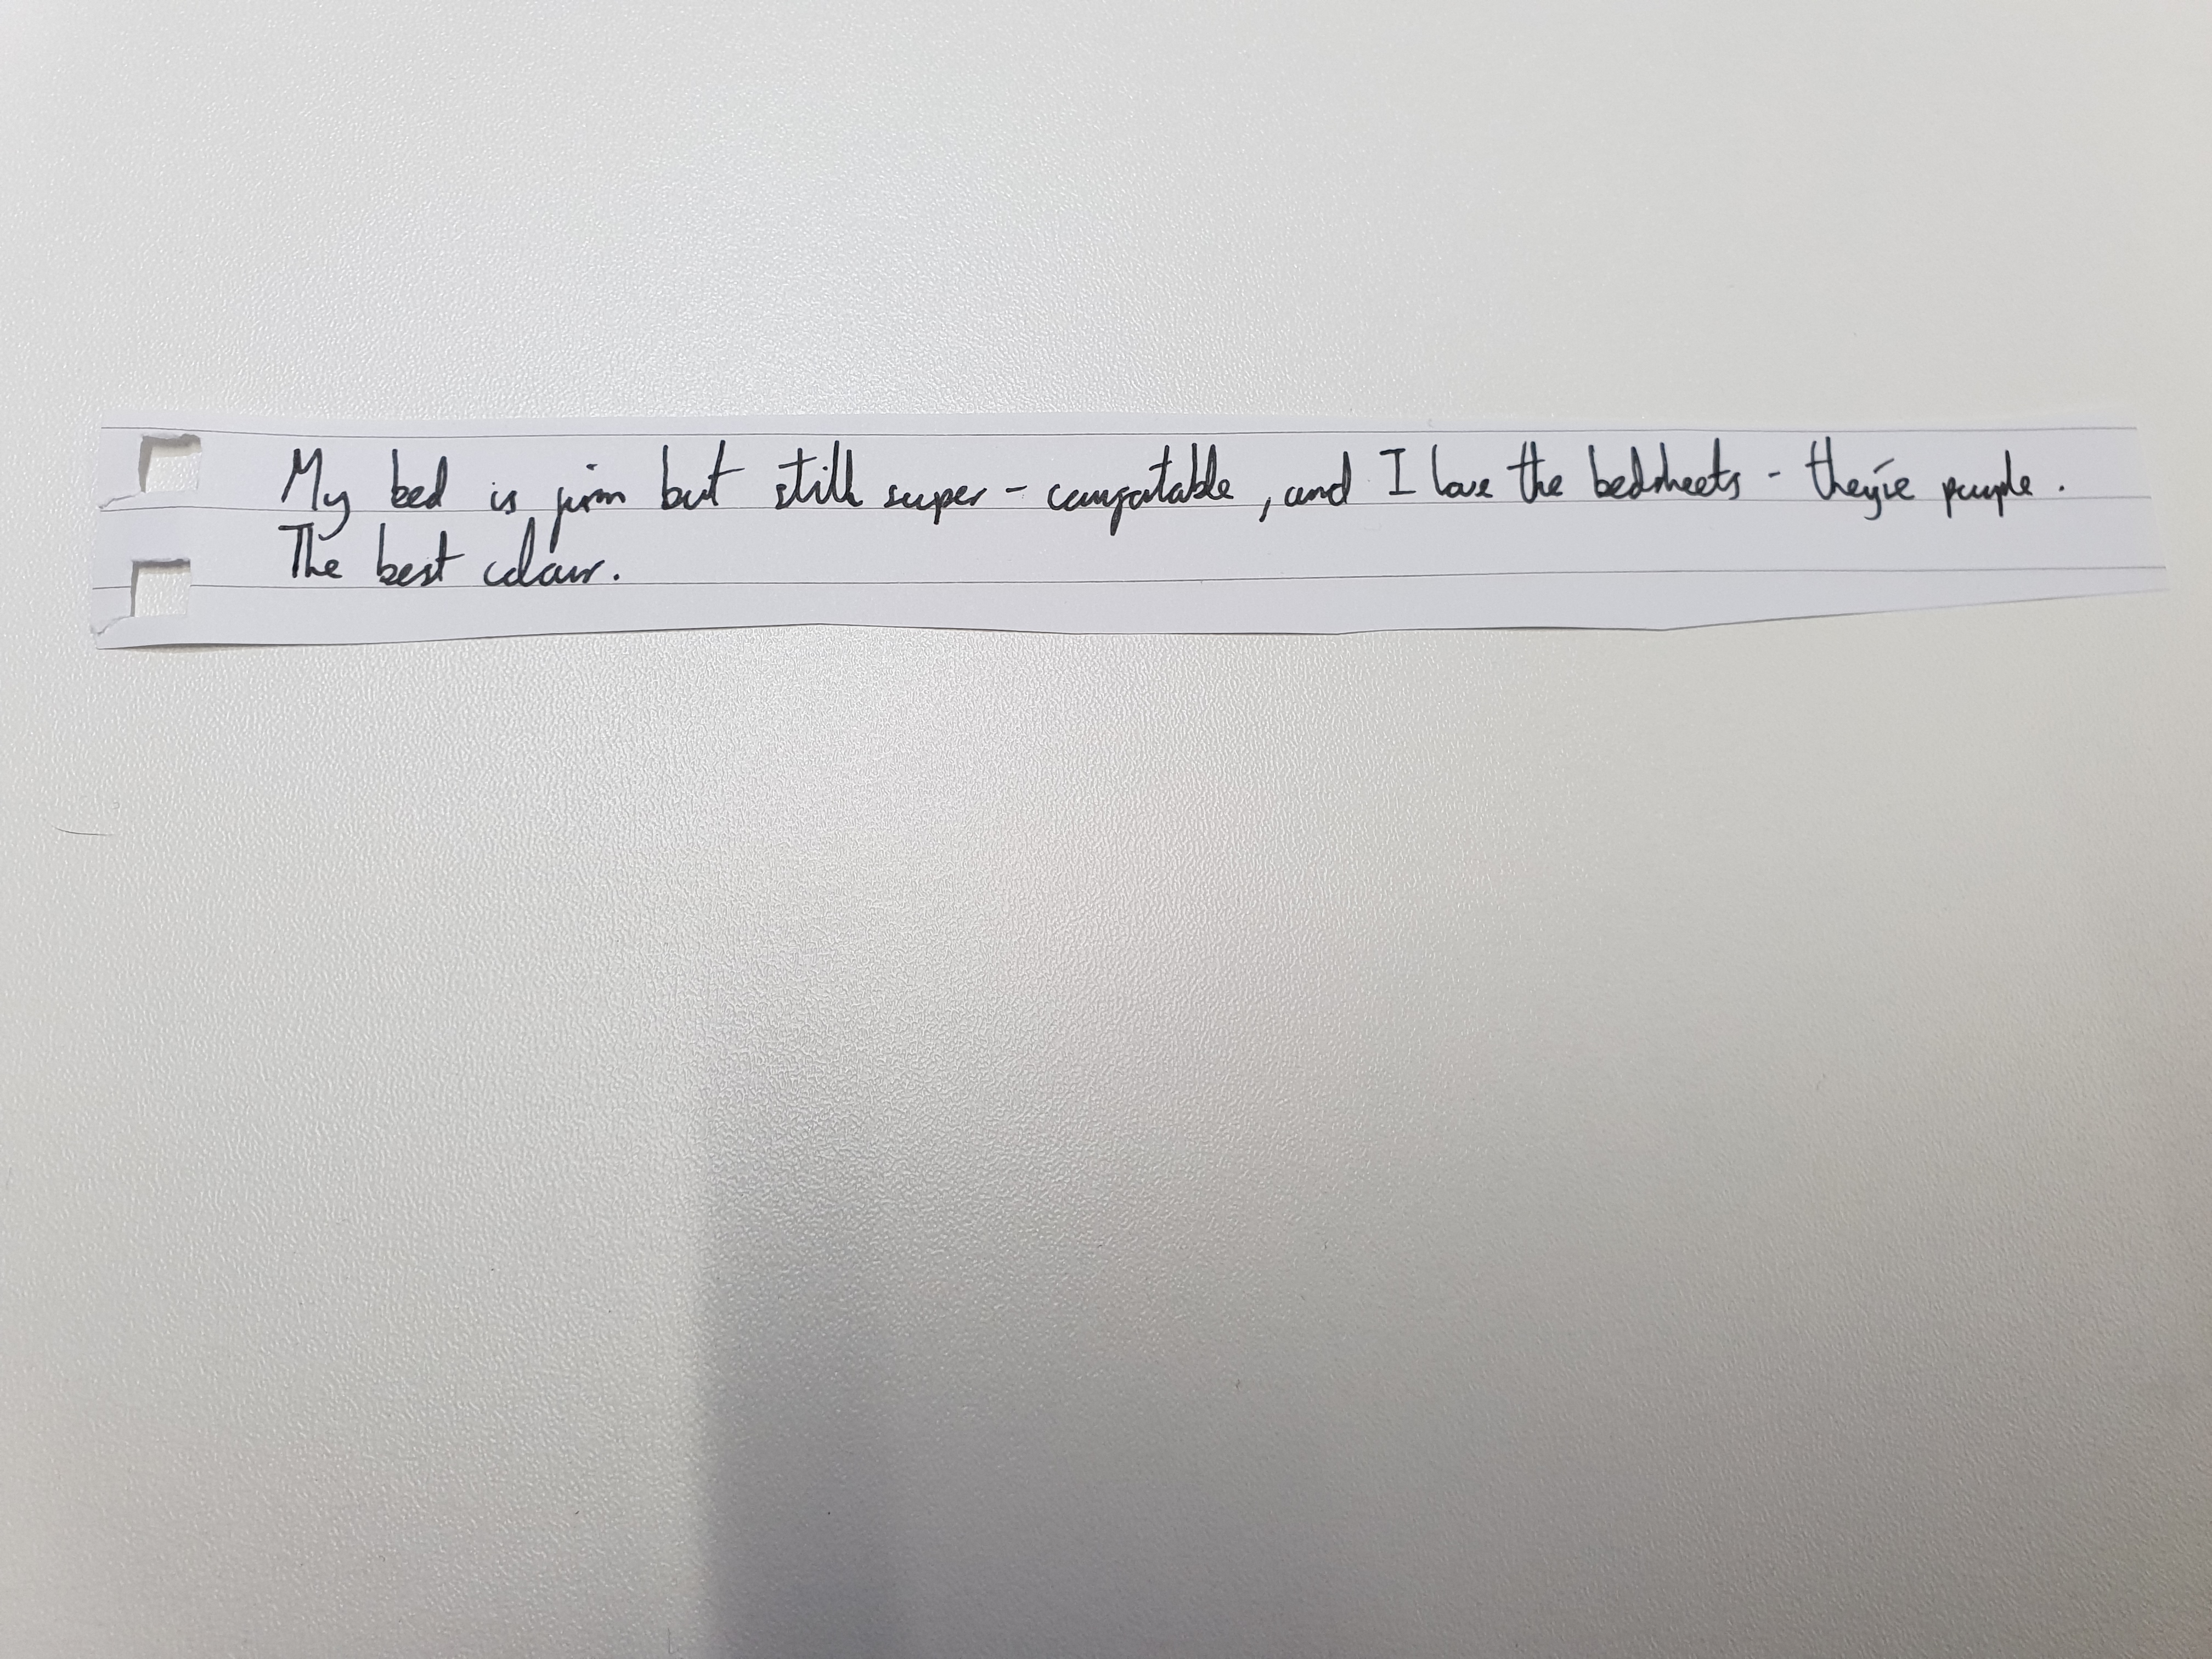 My bed is firm but still super - comfortable, and I love the bedsheets - they're purple.
The best colour.